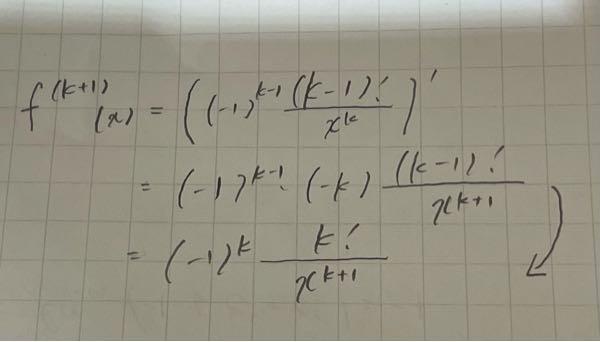 f^{(k+1)}(x) = ((-1)^{k-1} \frac{(k-1)!}{x^k})'
= (-1)^{k-1} \cdot (-k) \frac{(k-1)!}{x^{k+1}}
= (-1)^k \frac{k!}{x^{k+1}}